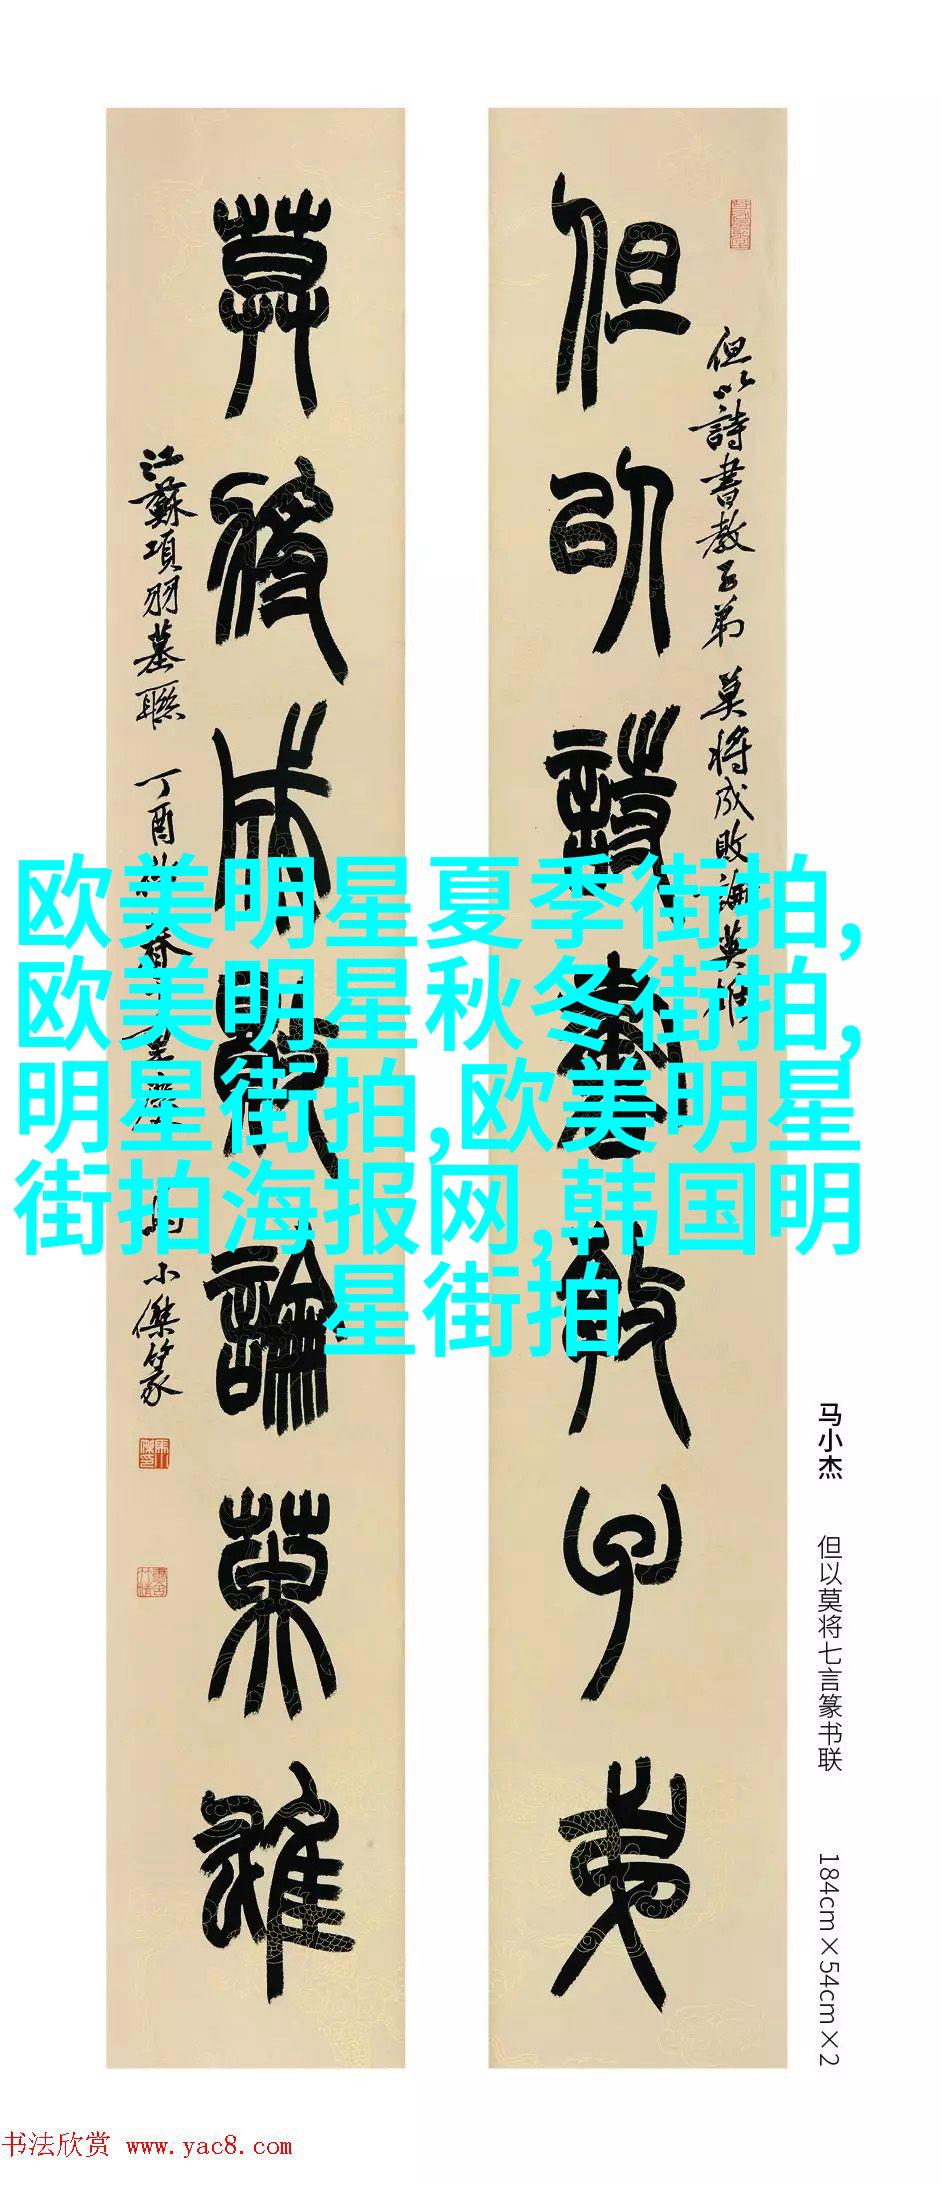 但以詩書教子弟
莫將成敗論英雄
但以詩書教子弟 莫將成敗論英雄
江蘇項羽墓聯 丁酉
小傑篆
欧美明星夏季街拍,
欧美明星秋冬街拍,
明星街拍,欧美明星
街拍海报网,韩国明
星街拍
马小杰 但以莫将七言篆书联 184cm×54cm×2
书法欣赏 www.yac8.com